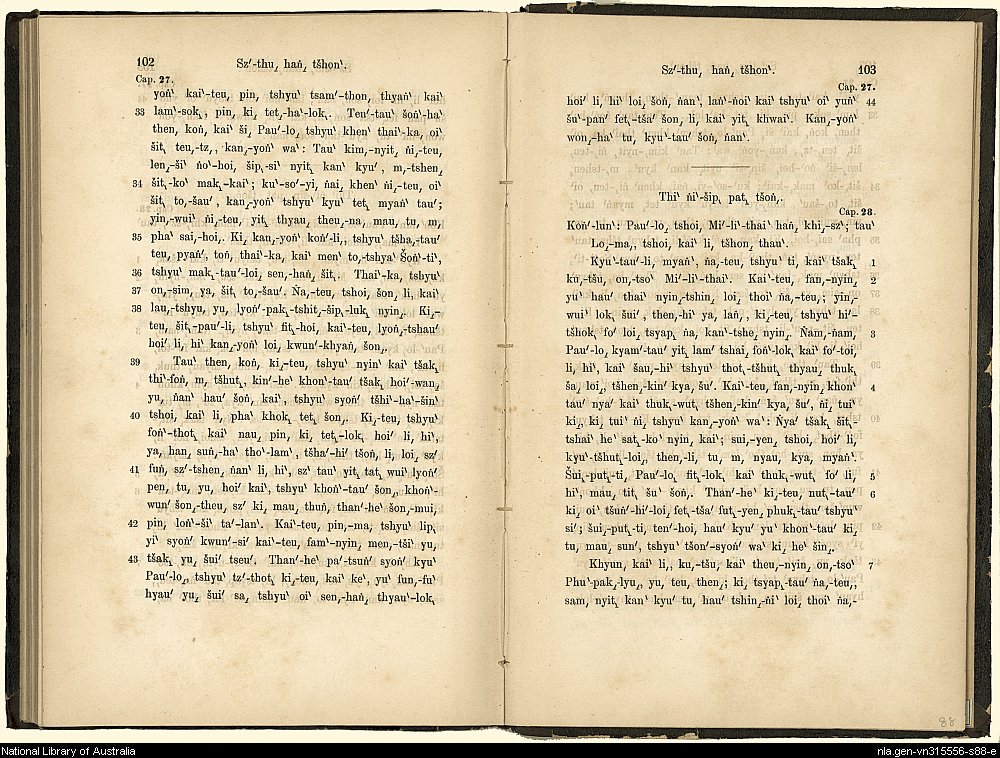 102
Sz′-thu¸ haṅ¸ tšhonˋ.
Cap. 27.
yoṅˋ kaiˋ-teu, pin¸ tshyuˋ tsam′-thon, thyaṅˋ kaiˋ
33 lamˋ-sok˛, pin¸ ki¸ tet˛-haˋ-lok˛. Ten′-tauˋ šoṅˋ-haˋ
then, koṅ¸ kaiˋ ši¸ Pau′-lo¸ tshyuˋ khenˋ thaiˋ-ka¸ oiˋ
šit˛ teu¸-tz¸, kan¸-yoṅˋ waˋ: Tauˋ kim¸-nyit˛ ṅi¸-teu,
len¸-šiˋ ṅoˋ-hoi, šip˛-siˋ nyit˛ kanˋ kyu′, m¸-tshen¸
34 šit˛-koˋ mak˛-kaiˋ; kuˋ-so′-yi, ṅai¸ khenˋ ṅi¸-teu, oiˋ
šit˛ to¸-šau′, kan¸-yoṅˋ tshyuˋ kyuˋ tet˛ myaṅˋ tau′;
yin¸-wuiˋ ṅi¸-teu, yit˛ thyau¸ theu¸-na, mau, tu, m¸
35 phaˋ sai¸-hoi¸. Ki¸ kan¸-yoṅˋ koṅ′-li¸, tshyuˋ tšha¸-tau′
teu¸ pyaṅ′, toṅ¸ thaiˋ-ka¸ kaiˋ menˋ to¸-tshyaˋ Šoṅˋ-tiˋ,
36 tshyuˋ mak˛-tau′-loi¸ sen¸-haṅ¸ šit˛. Thaiˋ-ka¸ tshyuˋ
37 on¸-sim, ya, šit˛ to¸-šau′. Ṅa¸-teu, tshoi, šon¸ li, kaiˋ
38 lau¸-tshyu, yu, lyoṅ′-pak˛-tshit˛-šip˛-luk˛ nyin¸. Ki¸-
teu, šit˛-pau′-li, tshyuˋ fit˛-hoi, kaiˋ-teu, lyoṅ¸-tshau′
hoi′ li, hi′ kan¸-yoṅˋ loi¸ kwun′-khyaṅ¸ šon¸.
39 Tauˋ then, koṅ¸ ki¸-teu, tshyuˋ nyinˋ kaiˋ tšak˛
thiˋ-foṅ, m, tšhut˛, kin′-heˋ khonˋ-tau′ tšak˛ hoi′-wan¸
yu, ṅanˋ hau′ šoṅ¸ kaiˋ, tshyuˋ syoṅ′ tšhiˋ-haˋ-šinˋ
40 tshoi, kaiˋ li, phaˋ khok˛ tet˛ šon¸. Ki¸-teu, tshyuˋ
foṅˋ-thot˛ kaiˋ nau¸ pin, ki¸ tet˛-lok˛ hoi′ li, hiˋ,
ya, han¸ suṅ¸-haˋ thoˋ-lamˋ, tšha′-hi′ tšoṅ¸ li, loi¸ sz′
41 fuṅ¸ sz′-tshen, ṅanˋ li, hiˋ, szˋ tauˋ yit˛ tat˛ wuiˋ lyoṅˋ
pen, tu, yu, hoi′ kaiˋ, tshyuˋ khoṅˋ-tau′ šon¸, khoṅˋ-
wunˋ šon¸-theu, sz′ ki¸ mau¸ thuṅ¸ thanˋ-heˋ šon¸-mui,
42 pin, loṅˋ-šiˋ ta′-lanˋ. Kaiˋ-teu, pin¸-ma, tshyuˋ lip˛
yiˋ syoṅ′ kwun′-si′ kaiˋ-teu, famˋ-nyin¸ men¸-tšiˋ yu¸
43 tšak˛ yu¸ šui′ tseu′. Than′-heˋ pa′-tsuṅ′ syoṅ′ kyuˋ
Pau′-lo¸, tshyuˋ tz′-thot˛ ki¸-teu, kaiˋ keˋ, yuˋ fun¸-fuˋ
hyau′ yu¸ šui′ sa¸ tshyuˋ oiˋ sen¸-haṅ¸ thyauˋ-lok˛
Sz′-thu¸ haṅ¸ tšhonˋ.
103
Cap. 27.
hoi′ li, hiˋ loi¸ šoṅ¸ ṅanˋ, laṅˋ-ṅoiˋ kaiˋ tshyuˋ oiˋ yuṅˋ 44
šuˋ-pan′ fet˛-tša′ šon¸ li, kaiˋ yit˛ khwaiˋ. Kan¸-yoṅˋ
won¸-haˋ tu, kyuˋ-tau′ šoṅ¸ ṅanˋ.
Thiˋ ṅiˋ-šip˛ pat˛ tšoṅ¸.
Cap. 28.
Koṅ′-lunˋ: Pau′-lo¸ tshoi, Mi′-liˋ-thaiˋ haṅ¸ khi¸-szˋ; tauˋ
Lo¸-ma¸, tshoi, kaiˋ li, tšhon¸ thauˋ.
Kyuˋ-tau′-li, myaṅˋ, ṅa¸-teu, tshyuˋ ti, kaiˋ tšak˛ 1
ku¸-tšu, on¸-tsoˋ Mi′-liˋ-thaiˋ. Kaiˋ-teu, fan¸-nyin¸ 2
yuˋ hau′ thaiˋ nyin¸-tshin¸ loi¸ thoiˋ ṅa¸-teu,; yin¸-
wuiˋ lok˛ šui′, then¸-hiˋ ya, laṅ¸, ki¸-teu, tshyuˋ hi′-
tšhok˛ fo′ loi¸ tsyap˛ ṅa, kanˋ-tshe¸ nyin¸. Ṅam¸-ṅam¸ 3
Pau′-lo¸ kyam′-tau′ yit˛ lam′ tshai¸ foṅˋ-lok˛ kaiˋ fo′-toi,
li, hiˋ, kaiˋ šau¸-hiˋ tshyuˋ thot˛-tšhut˛ thyau¸ thuk˛
ša¸ loi¸, tšhen¸-kin′ kya¸ šu′. Kaiˋ-teu, fan¸-nyin¸ khonˋ 4
tau′ nya′ kaiˋ thuk˛-wut˛ tšhen¸-kin′ kya¸ šu′, ṅi¸ tuiˋ
ki¸, ki¸ tuiˋ ṅi¸ tshyuˋ kan¸-yoṅˋ waˋ: Ṅya′ tšak˛ šit˛-
tshaiˋ heˋ sat˛-koˋ nyin¸ kaiˋ; sui¸-yen¸ tshoi, hoi′ li,
kyuˋ-tšhut˛-loi¸, then¸-li, tu, m, nyau, kya, myaṅˋ.
Šui˛-put˛-ti¸ Pau′-lo¸ fit˛-lok˛ kaiˋ thuk˛-wut˛ fo′ li, 5
hiˋ, mau¸ tit˛ šuˋ šoṅ¸. Thanˋ-heˋ ki¸-teu, nut˛-tau′ 6
ki¸ oiˋ tšuṅ′-hi′-loi¸ fet˛-tša′ fut˛-yen¸ phuk˛-tau′ tshyuˋ
si′; šui¸-put˛-ti, ten′-hoi, hau′ kyu′ yuˋ khonˋ-tau′ ki¸
tu, mau¸ sunˋ, tshyuˋ tšon′-syoṅ′ waˋ ki¸ heˋ šin¸.
Khyun, kaiˋ li¸, ku¸-tšu, kaiˋ theu¸-nyin¸ on¸-tsoˋ 7
Phuˋ-pak˛-lyu¸, yu, teu, then¸; ki¸ tsyap˛-tau′ ṅa¸-teu¸,
sam, nyit˛ kanˋ kyu′ tu, hau′ tshin¸-ṅiˋ loi¸ thoiˋ ṅa¸-
88
National Library of Australia
nla.gen-vn315556-s88-e